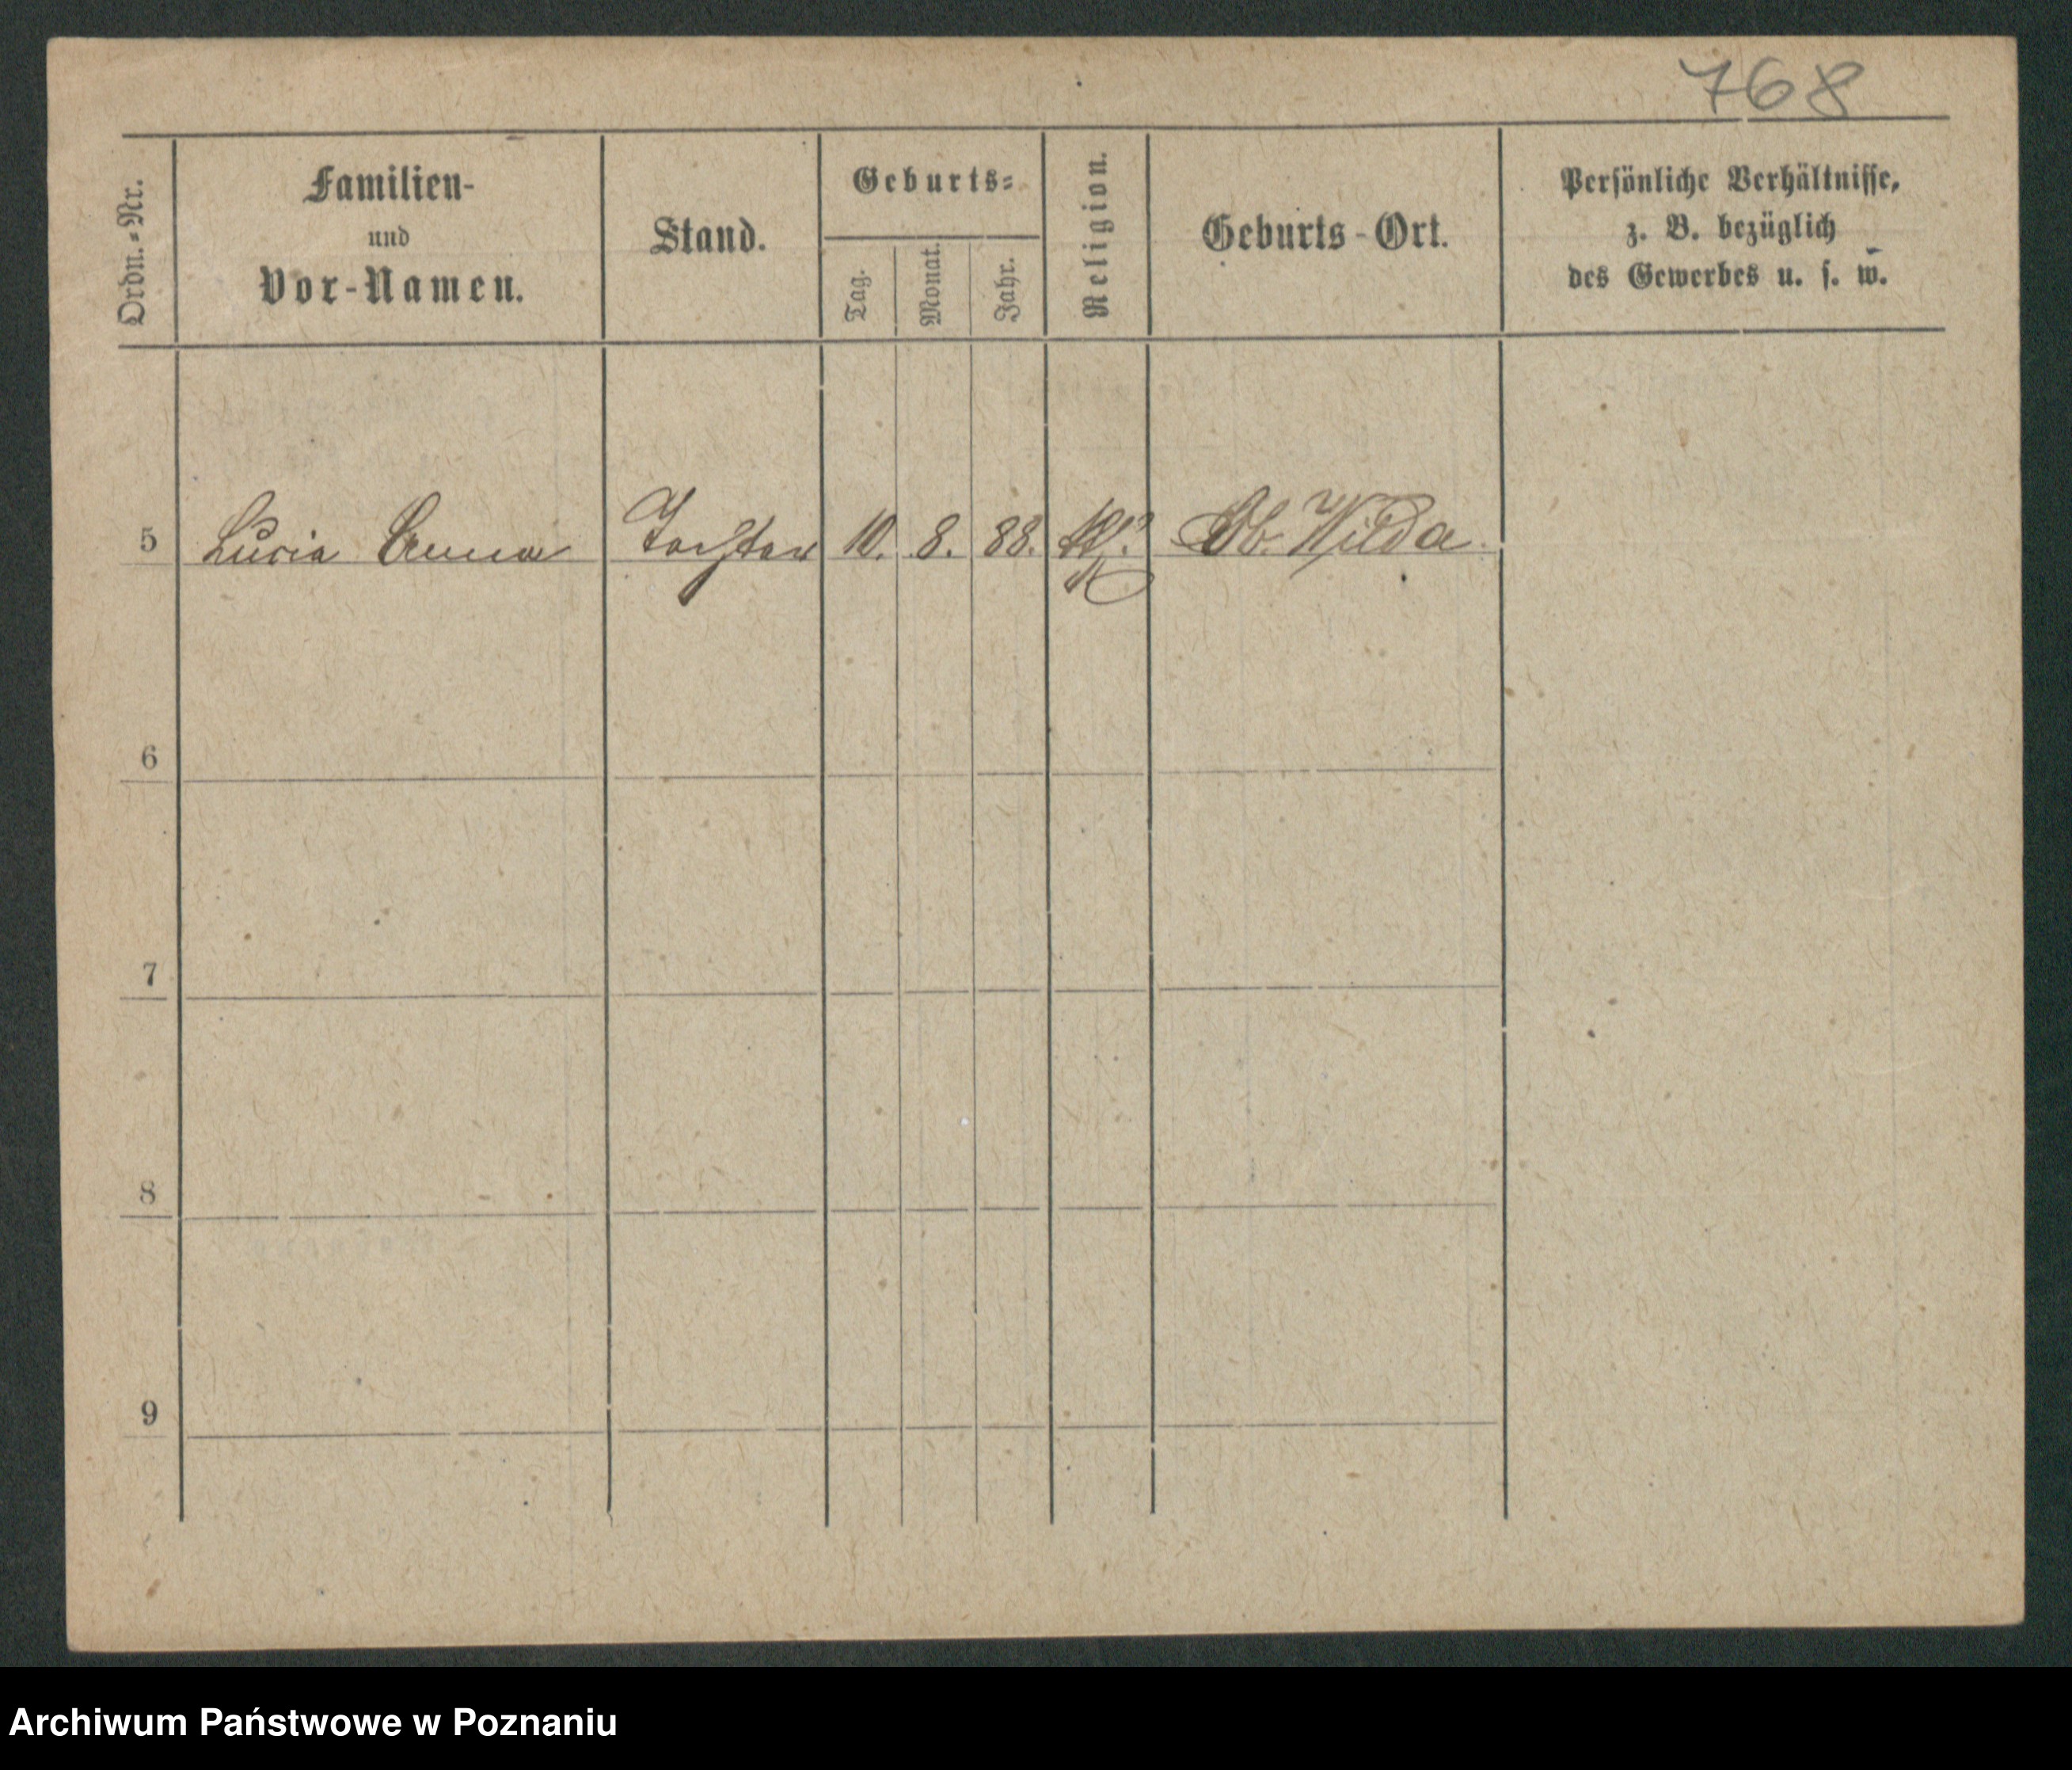 768
Ordn.-Nr.
Familien-
und
Vor-Namen.
Stand.
Geburts-
Tag.
Monat.
Jahr.
Religion.
Geburts-Ort.
Persönliche Verhältnisse,
z. B. bezüglich
des Gewerbes u. s. w.
5 Lucia Anna Tochter 10. 8. 88. Ob. Wilda
6
7
8
9
Archiwum Państwowe w Poznaniu